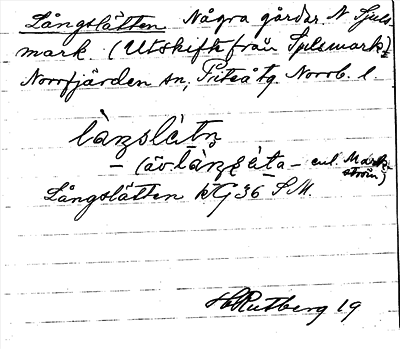 Långslätten Några gårdar N. Sjuls
mark (Utskifte från Sjulsmark)
Norrfjärden sn, Piteå tg. Norrb. l.
làŋslètn̥
– (äv. – enl. Mark-
ström)
Långslätten kG 36 SM.
H Rutberg 19